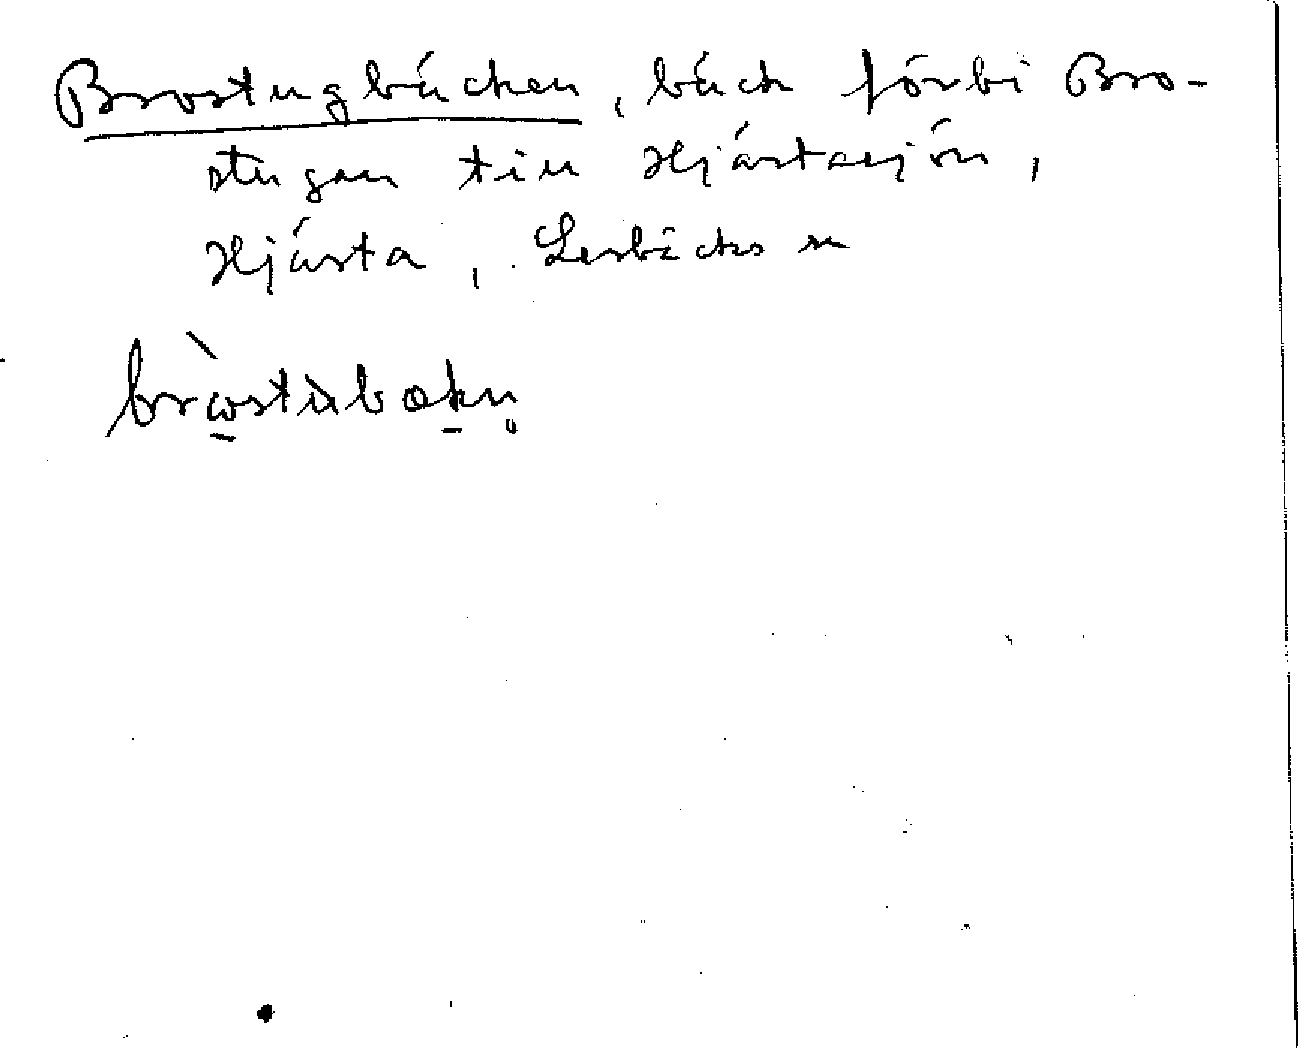 Brostugbäcken, bäck förbi Bro-
stugan till Hjärtasjön,
Hjärsta, Lerbäcks sn